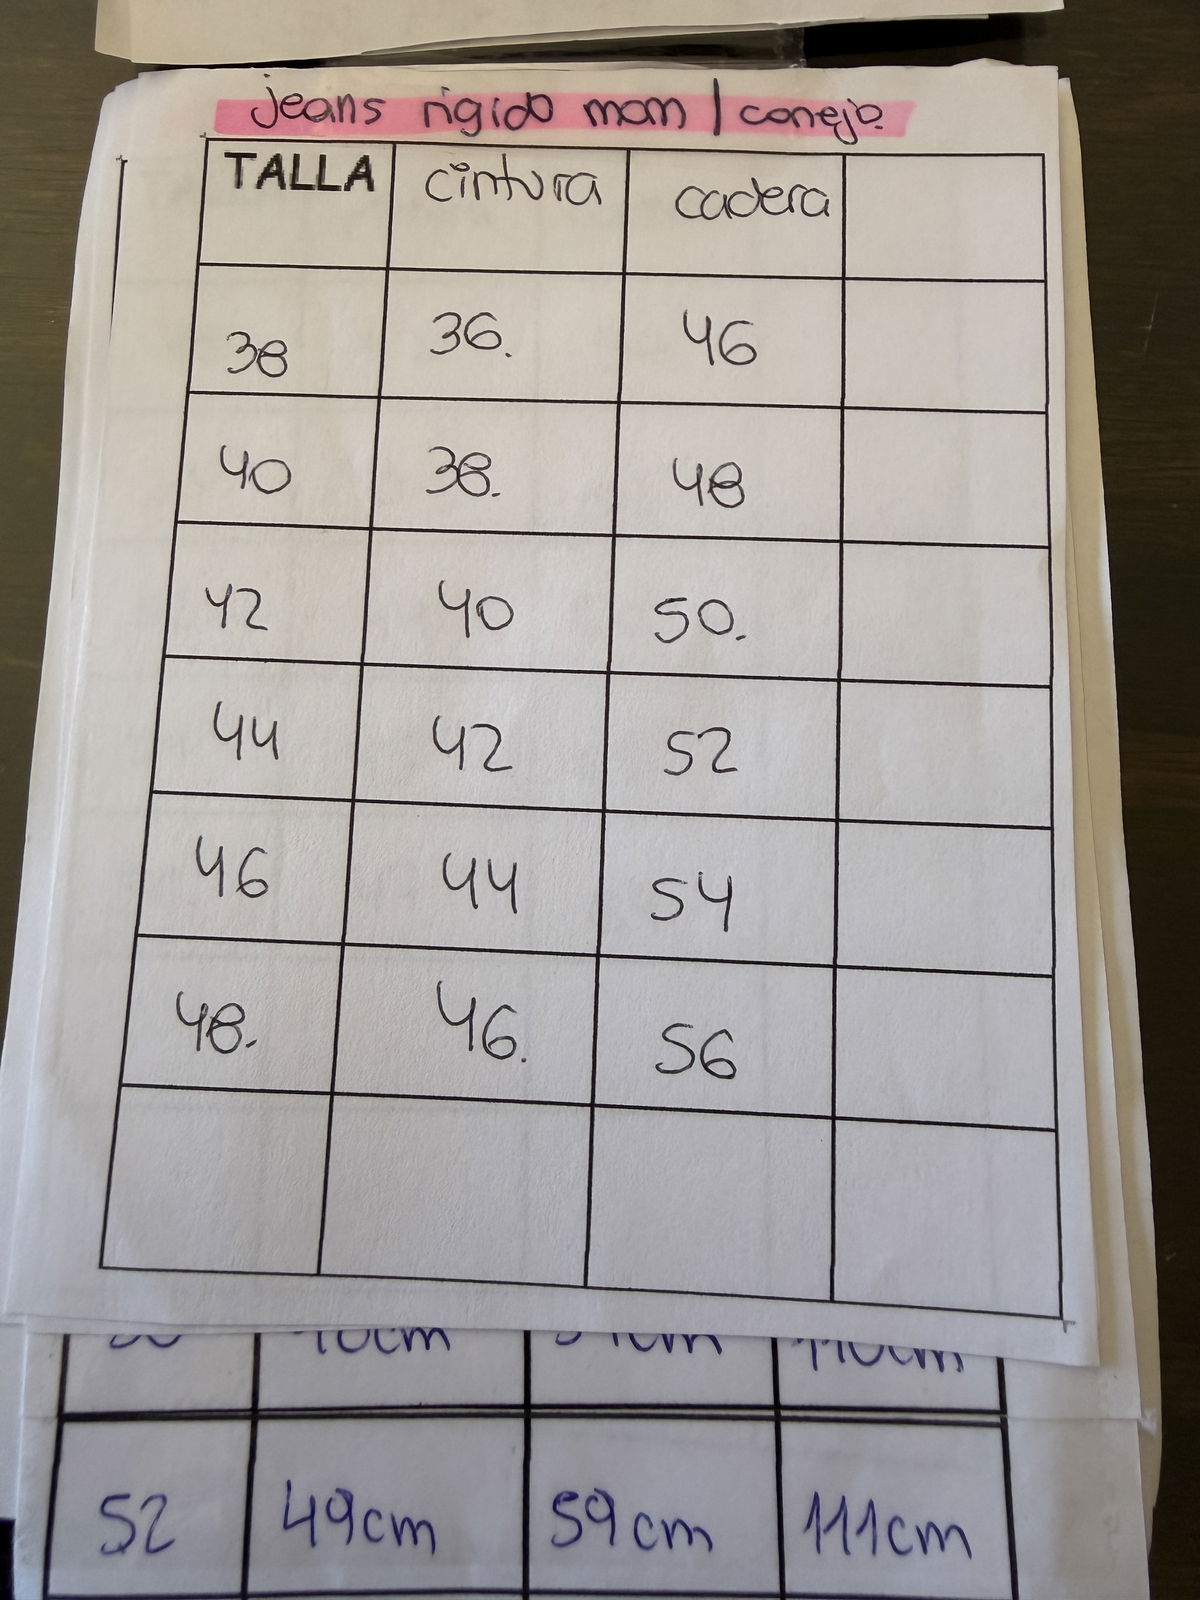 jeans rigido mom | conejo.
TALLA cintura cadera
38 36. 46
40 38. 48
42 40 50.
44 42 52
46 44 54
48. 46. 56
52 49cm 59cm 111cm